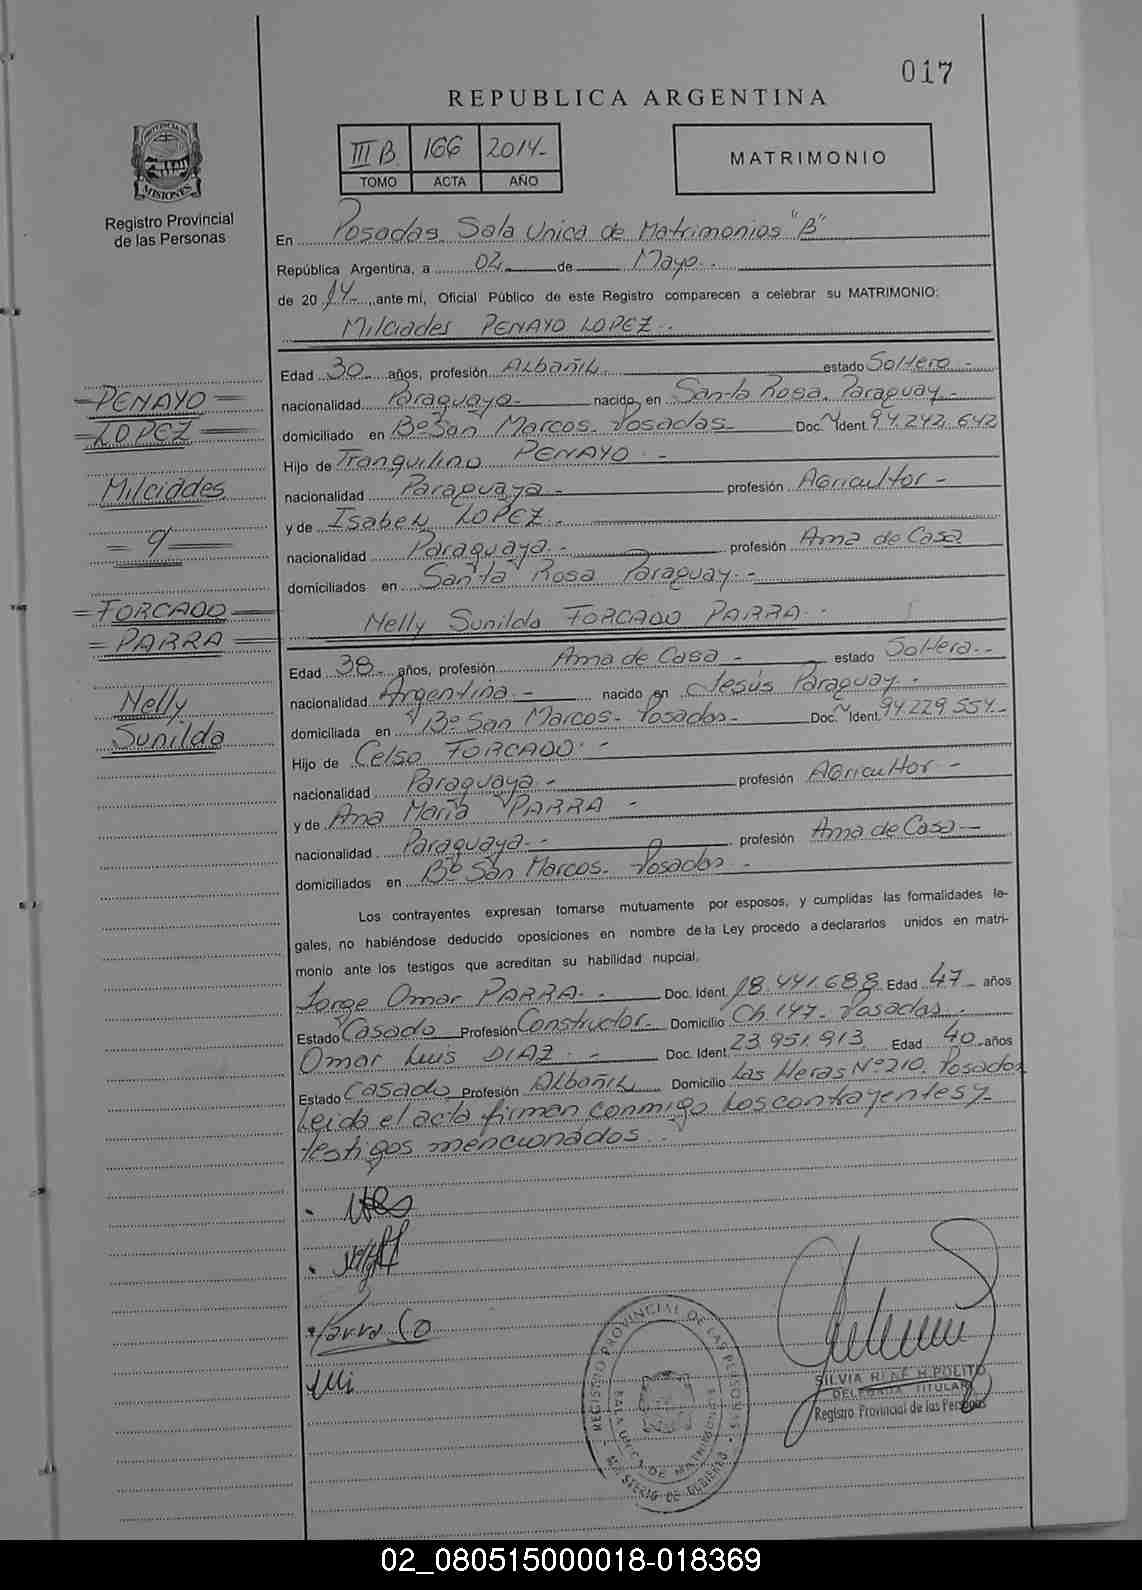 017
REPUBLICA ARGENTINA
III B. 166 2014-
TOMO ACTA AÑO
MATRIMONIO
PROVINCIA DE MISIONES
Registro Provincial
de las Personas
En Posadas. Sala Unica de Matrimonios "B"
República Argentina, a 02 de Mayo.
de 2014 ,ante mi, Oficial Público de este Registro comparecen a celebrar su MATRIMONIO:
Milciades PENAYO LOPEZ.
Edad 30 años, profesión Albañil estado Soltero-
nacionalidad Paraguaya- nacido en Santa Rosa. Paraguay-
domiciliado en Bº San Marcos. Posadas- Doc. Ident. 94.242.642
Hijo de Tranquilino PENAYO.-
nacionalidad Paraguaya- profesión Agricultor-
y de Isabel LOPEZ.
nacionalidad Paraguaya.- profesión Ama de Casa
domiciliados en Santa Rosa Paraguay.-
Nelly Sunilda FORCADO PARRA.
Edad 38- años, profesión Ama de Casa- estado Soltera.-
nacionalidad Argentina.- nacido en Jesús Paraguay.
domiciliada en Bº San Marcos- Posadas- Doc. Ident. 94.229.554-
Hijo de Celso FORCADO.-
nacionalidad Paraguaya.- profesión Agricultor-
y de Ana María PARRA-
nacionalidad Paraguaya.- profesión Ama de Casa-
domiciliados en Bº San Marcos. Posadas-
Los contrayentes expresan tomarse mutuamente por esposos, y cumplidas las formalidades le-
gales, no habiéndose deducido oposiciones en nombre de la Ley procedo a declararlos unidos en matri-
monio ante los testigos que acreditan su habilidad nupcial.
Jorge Omar PARRA.- Doc. Ident. 18.441.688 Edad 47 años
Estado Casado Profesión Constructor- Domicilio Ch. 147- Posadas.
Omar Luis DIAZ.- Doc. Ident. 23.951.913 Edad 40 años
Estado Casado Profesión Albañil Domicilio Las Heras Nº 210. Posadas
Leida el acta firman conmigo los contrayentes y
testigos mencionados.
=PENAYO=
=LOPEZ=
Milciades
FORCADO
=PARRA=
Nelly
Sunilda
Parra
REGISTRO PROVINCIAL DE LAS PERSONAS
SALA UNICA DE MATRIMONIOS
MINISTERIO DE GOBIERNO
SILVIA RENE HIPOLITO
DELEGADA TITULAR
Registro Provincial de las Personas
02_080515000018-018369